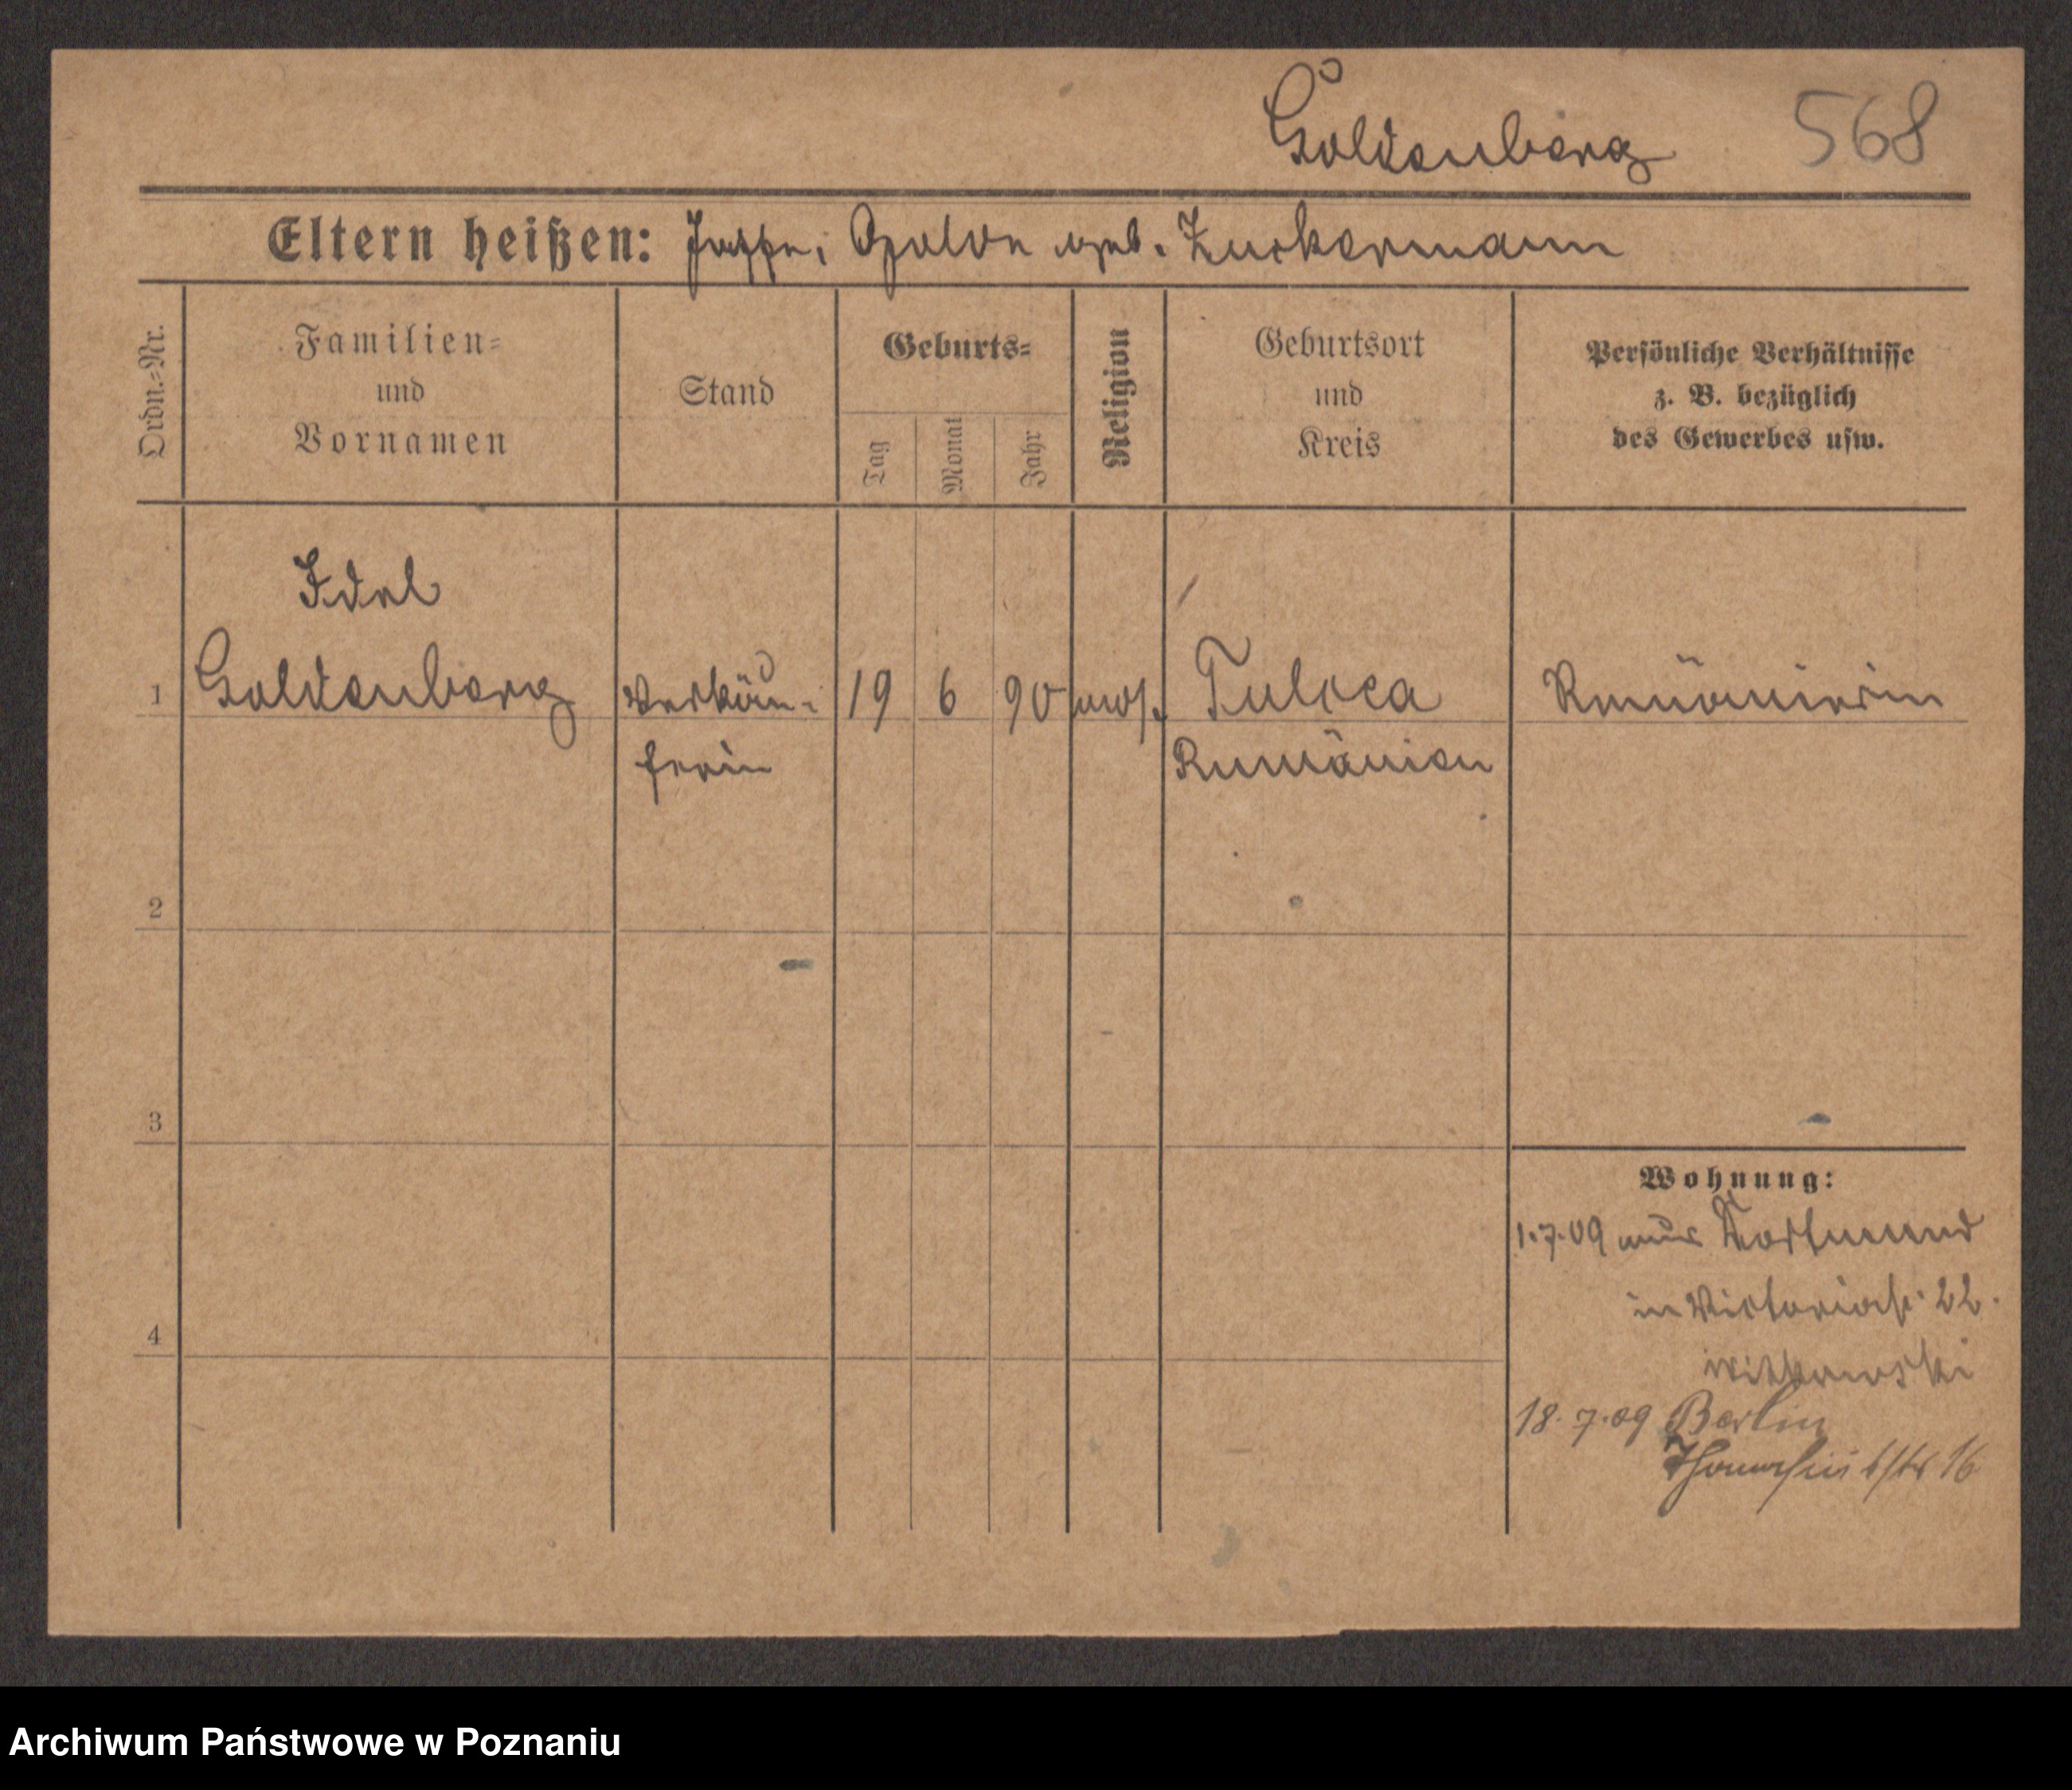 Goldenberg 568
Eltern heißen: geb. Zuckermann
Ordn.=Nr.
Familien=
und
Vornamen
Stand
Geburts=
Tag
Monat
Jahr
Religion
Geburtsort
und
Kreis
Persönliche Verhältnisse
z. B. bezüglich
des Gewerbes usw.
Idel
1 Goldenberg Verkäu- 19 6 90 mos. Tulcea Rumänierin
ferin Rumänien
2
3
4
Wohnung:
1.7.09 aus Dortmund
in Victoriastr. 22.
Witkowski
18.7.09 Berlin
Thomasiusstr 16
Archiwum Państwowe w Poznaniu